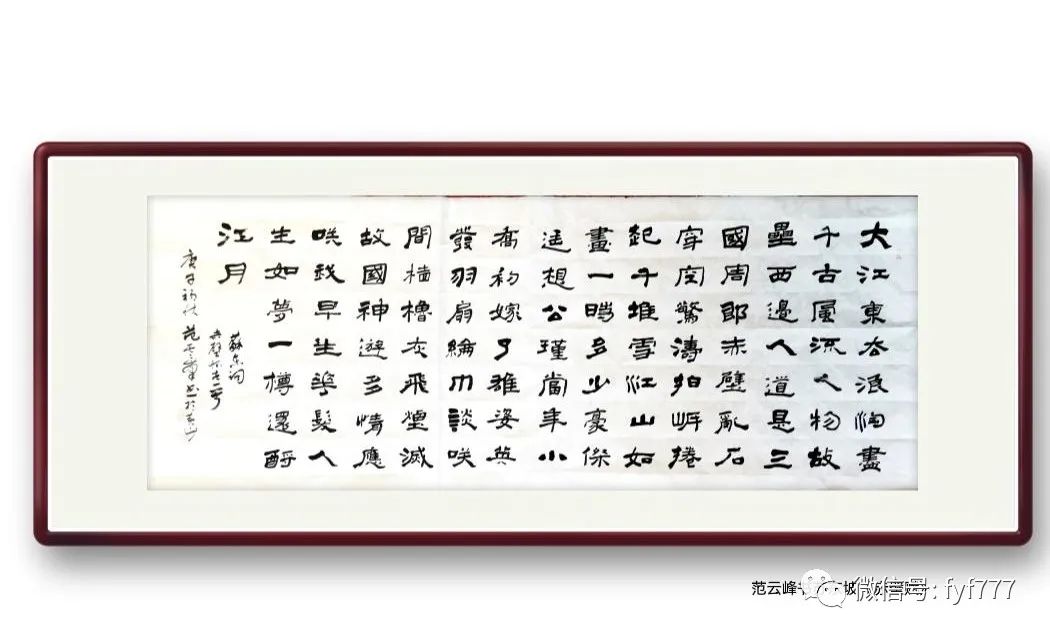 大江東去浪淘盡
千古風流人物故
壘西邊人道是三
國周郎赤壁亂石
穿空驚濤拍岸捲
起千堆雪江山如
畫一時多少豪傑
遥想公瑾當年小
喬初嫁了雄姿英
發羽扇綸巾談咲
間檣櫓灰飛煙滅
故國神遊多情應
咲我早生華髮人
生如夢一樽還酹
江月
庚子初秋范云峰书於
范云峰书
微信号: fyf777